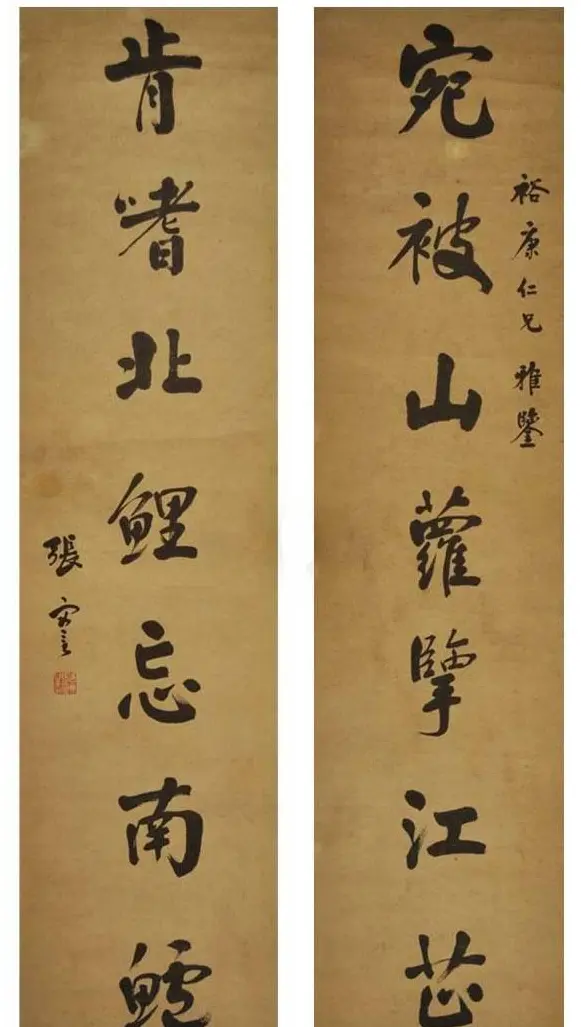 裕康仁兄雅鑒
宛被山蘿擥江芷
肯嗜北鯉忘南鱸
張謇